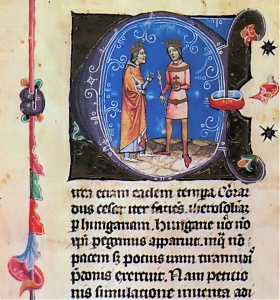 C
irca eciam eadem tempa. Corra
dus cesar iter faciēs iherosoli
p hungariam. hungaris uō nō
peginus apparuit. in q nō
pacem s; pocius uim tirannidi
pdonis exercuit. Nam peticio
nis simulatione inuenta adi